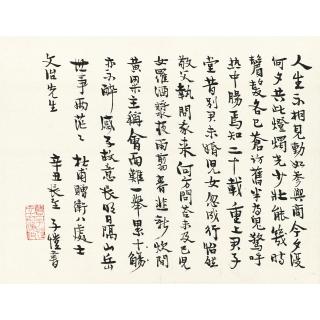 人生不相見動如參與商今夕復
何夕共此燈燭光少壯能幾時
鬢髮各已蒼訪舊半為鬼驚呼
熱中腸焉知二十載重上君子
堂昔別君未婚兒女忽成行怡然
敬父執問我來何方問答未及已兒
女羅酒漿夜雨剪春韭新炊間
黃粱主稱會面難一舉累十觴
亦不醉感子故意長明日隔山岳
世事兩茫茫 杜甫贈衛八處士
文 先生 辛丑長至 子愷書